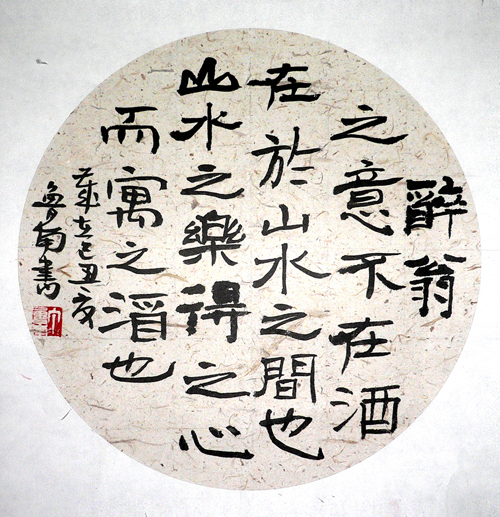 醉翁
之意不在酒
在於山水之間也
山水之樂得之心
而寓之酒也
歲在己丑夏
魯南書